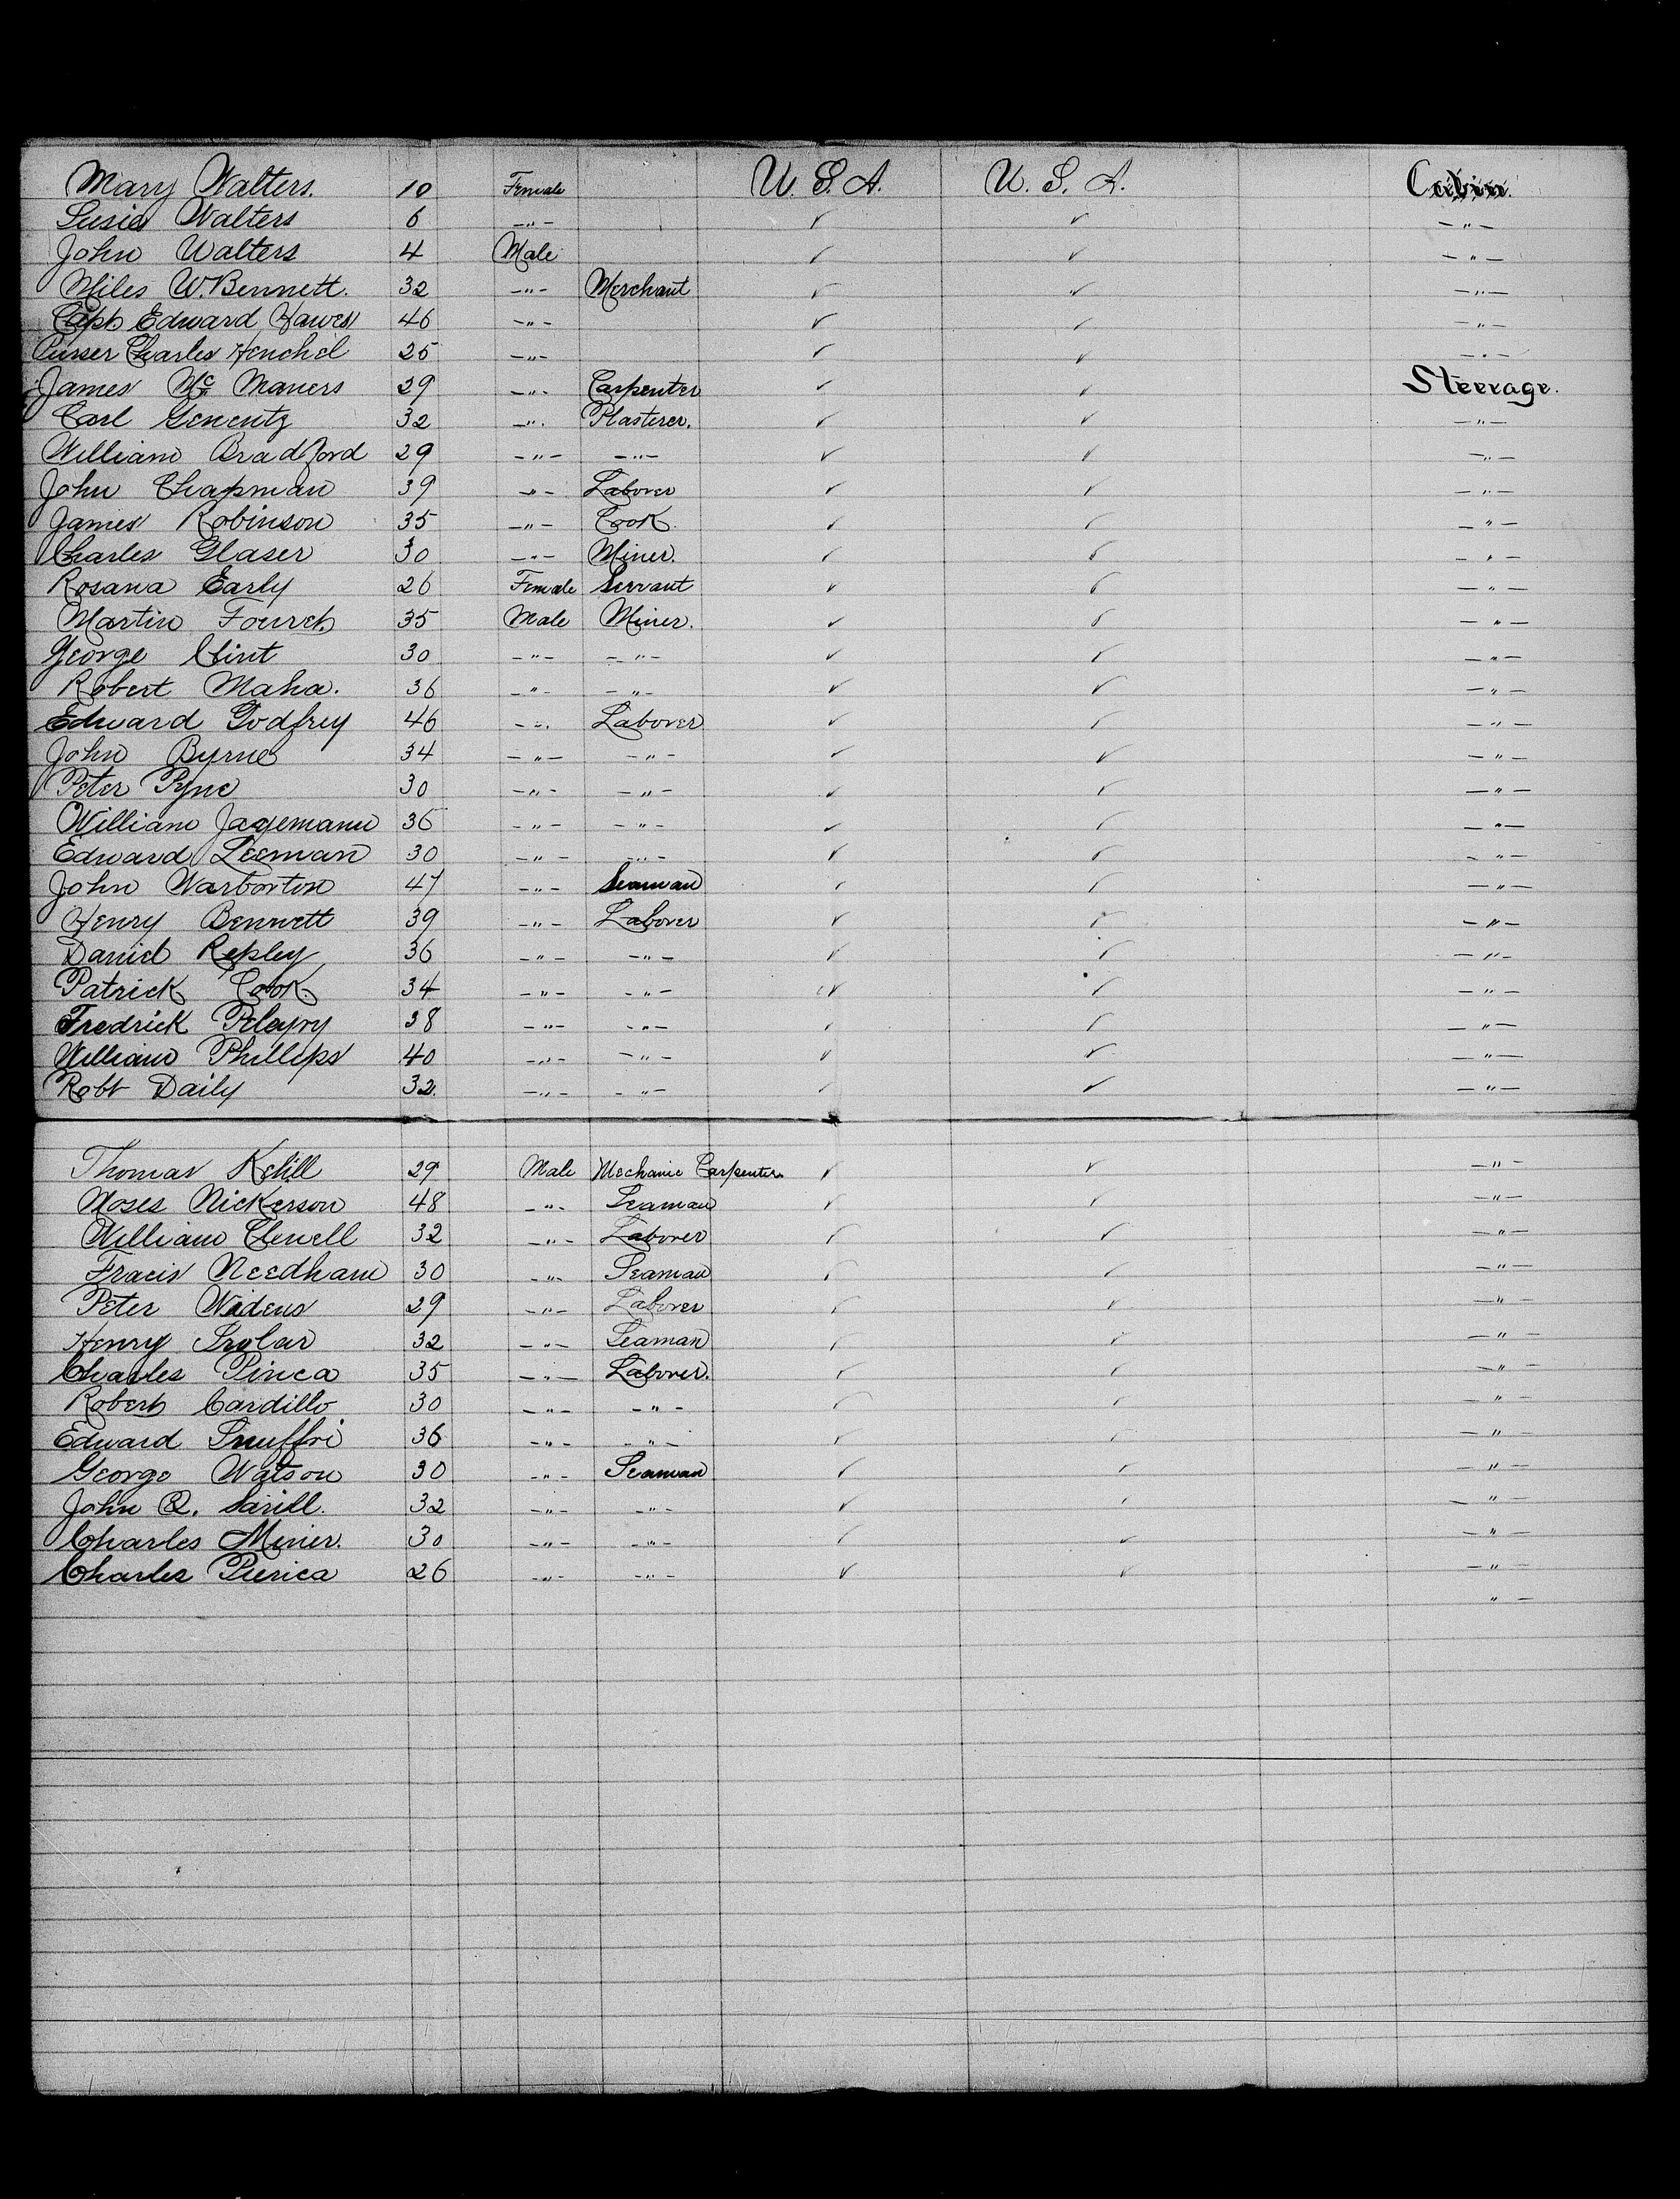 Mary Walters. 10 Female U. S. A. U. S. A. Cabin.
Susie Walters 6 -"- ✓ ✓ -"-
John Walters 4 Male ✓ ✓ -"-
Miles W. Bennett. 32 -"- Merchant ✓ ✓ -"-
Capt Edward Hawes 46 -"- ✓ ✓ -"-
Purser Charles Henchel 25 -"- ✓ ✓ -"-
James Mc Maners 29 -"- Carpenter ✓ ✓ Steerage.
Carl Genentz 32 -"- Plasterer. ✓ ✓ -"-
William Bradford 29 -"- -"- ✓ ✓ -"-
John Chapman 39 -"- Laborer ✓ ✓ -"-
James Robinson 35 -"- Cook. ✓ ✓ -"-
Charles Glaser 30 -"- Miner. ✓ ✓ -"-
Rosana Early 26 Female Servant ✓ ✓ -"-
Martin 35 Male Miner. ✓ ✓ -"-
George Clint 30 -"- -"- ✓ ✓ -"-
Robert Maha. 36 -"- -"- ✓ ✓ -"-
Edward Godfrey 46 -"- Laborer ✓ ✓ -"-
John Byrne 34 -"- -"- ✓ ✓ -"-
Peter Pyne 30 -"- -"- ✓ ✓ -"-
William Jagemann 36 -"- -"- ✓ ✓ -"-
Edward Leeman 30 -"- -"- ✓ ✓ -"-
John Warborton 47 -"- Seaman ✓ ✓ -"-
Henry Bennett 39 -"- Laborer ✓ ✓ -"-
Daniel Repley 36 -"- -"- ✓ ✓ -"-
Patrick Cook. 34 -"- -"- ✓ ✓ -"-
Fredrick 38 -"- -"- ✓ ✓ -"-
William Phillips 40 -"- -"- ✓ ✓ -"-
Robt Daily 32. -"- -"- ✓ ✓ -"-
Thomas 29 Male Mechanic Carpenter. ✓ ✓ -"-
Moses Nickerson 48 -"- Seaman ✓ ✓ -"-
William Clewell 32 -"- Laborer ✓ ✓ -"-
Fracis Needham 30 -"- Seaman ✓ ✓ -"-
Peter Widens 29 -"- Laborer ✓ ✓ -"-
Henry 32 -"- Seaman ✓ ✓ -"-
Charles Pinca 35 -"- Laborer. ✓ ✓ -"-
Robert Cardillo 30 -"- -"- ✓ ✓ -"-
Edward 36 -"- -"- ✓ ✓ -"-
George Watson 30 -"- Seaman ✓ ✓ -"-
John Q. 32 -"- -"- ✓ ✓ -"-
Charles Minier. 30 -"- -"- ✓ ✓ -"-
Charles 26 -"- -"- ✓ ✓ -"-
" -